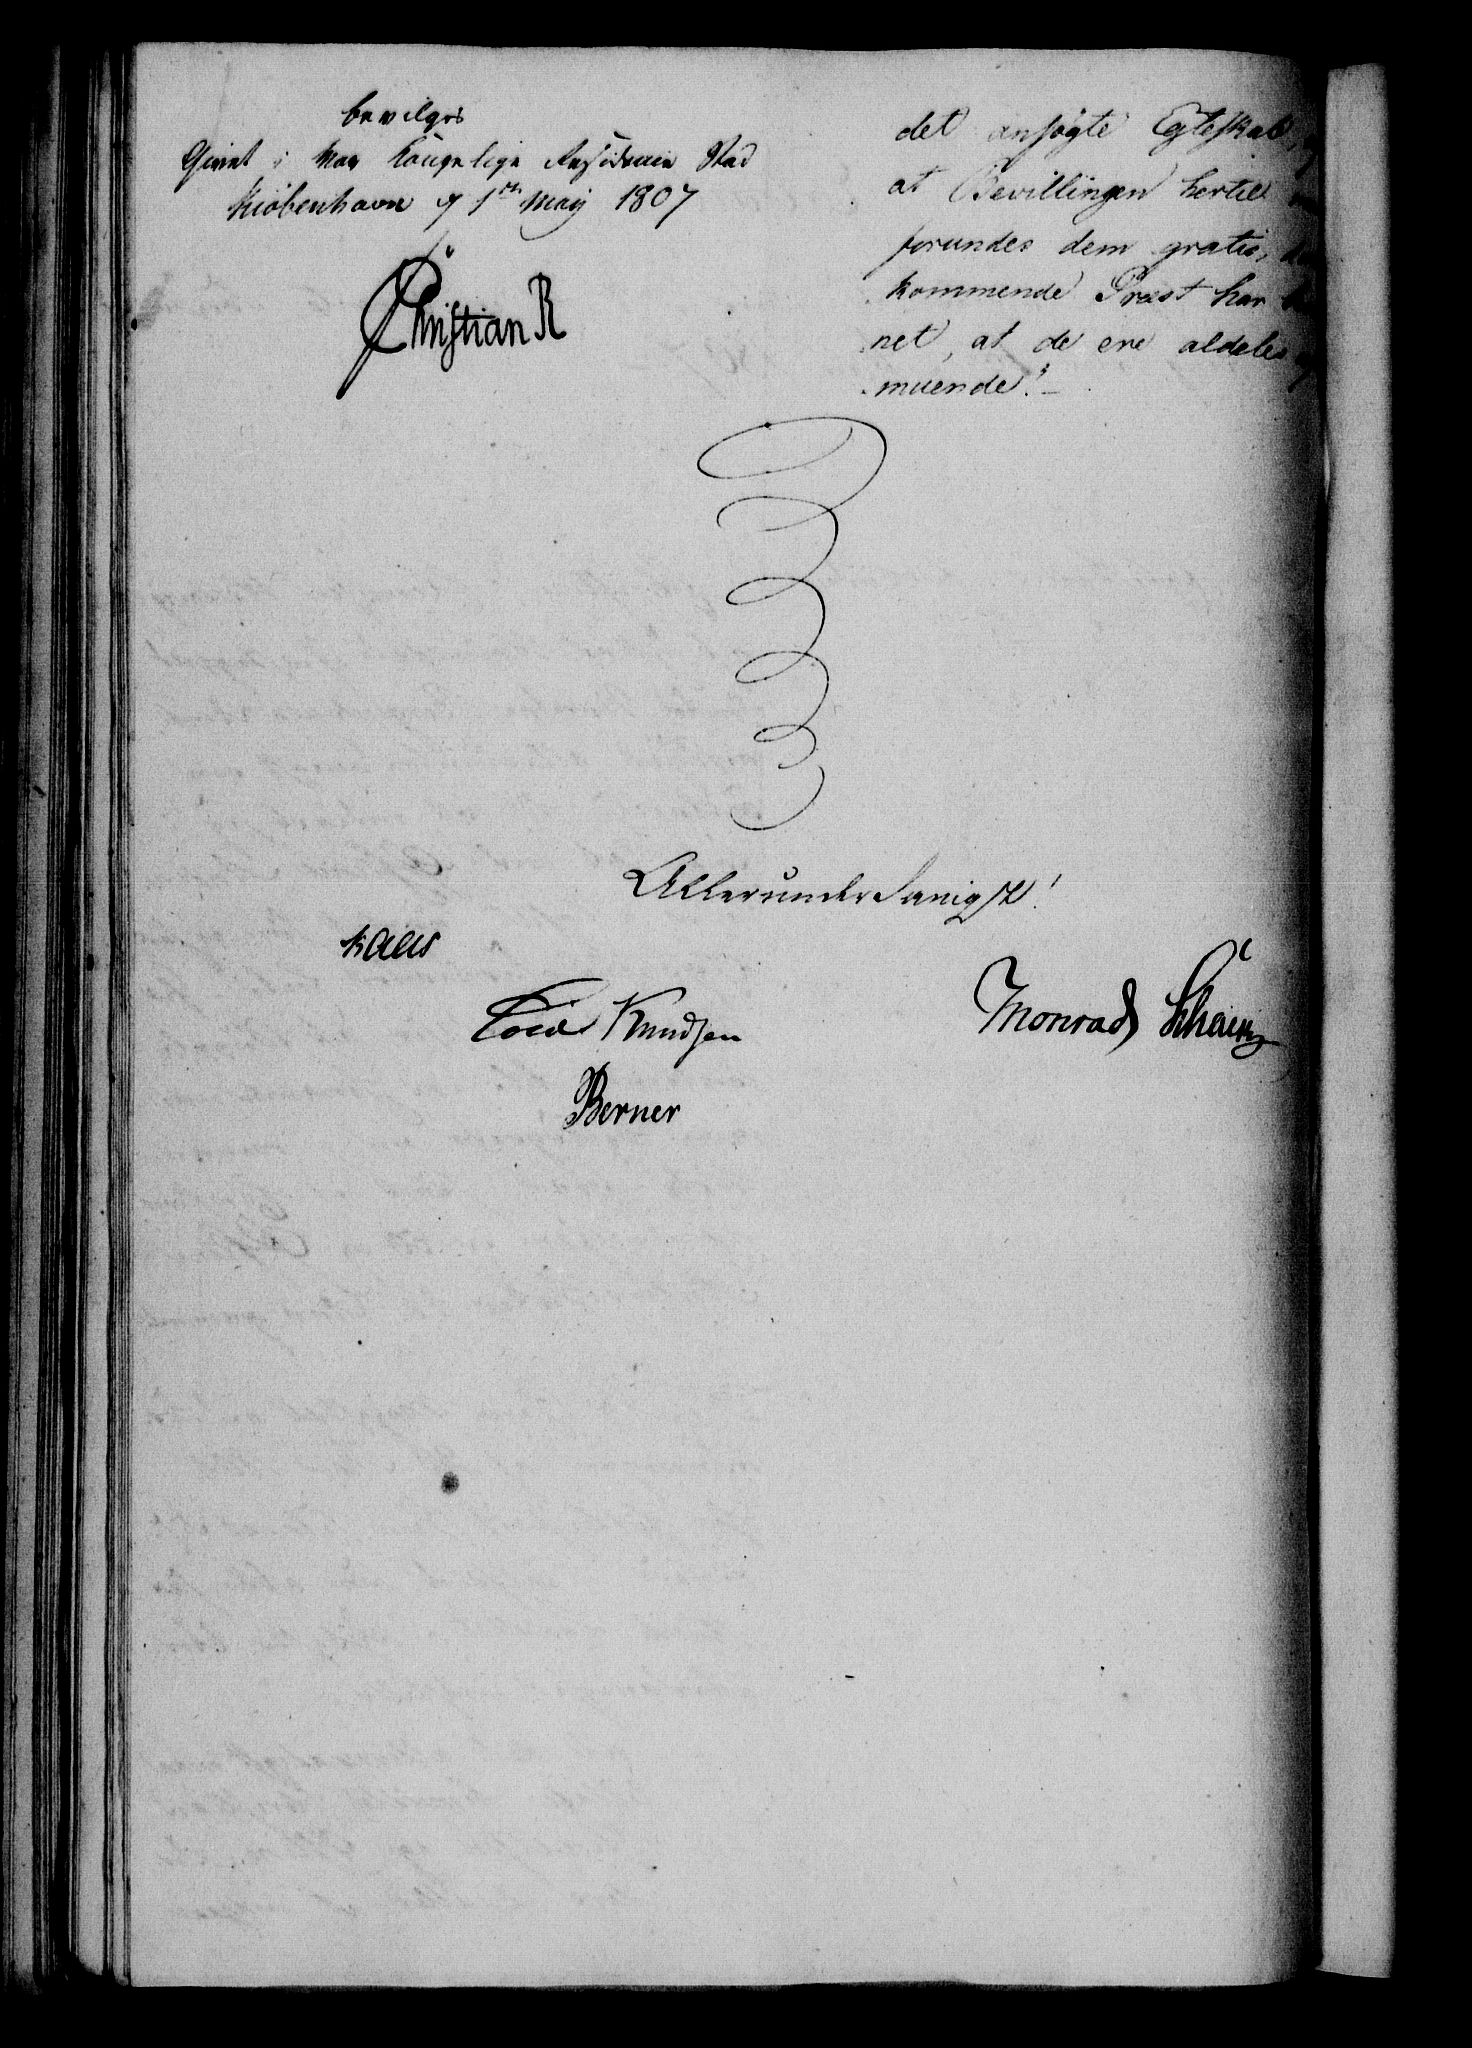 bevilges
Givet i vor Kongelige Residence Stad
Kiøbenhavn d 1ste Maij 1807
Christian R
det ansøgte Egteskab,
at Bevillingen hertil
forundes dem gratis,
kommende Præst har
net, at de ere aldeles
muende." –
Allerunderdanigst!
Kaas
Cold Knudsen
Monrad
Berner